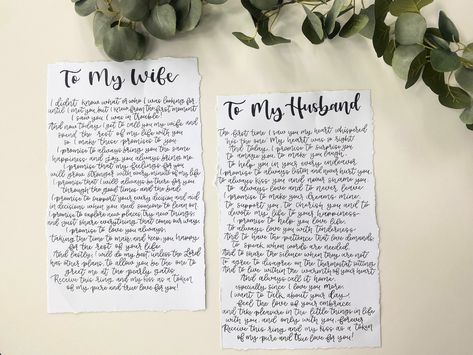 To My Wife
I didn't know what or who I was looking for
until I met you but I knew from the first moment
I saw you I was in trouble!
And now today I get to call you my wife and
spend the rest of my life with you
so I make these promises to you
I promise to always bring you the same
happiness and stay you always bring me
I promise that my feelings for you
will grow stronger with every minute of my life
I promise that I will always be true to you
through the good times and the bad
I promise to support your every decision and aid
decisions when you need someone to lean on
I promise to explore new places, try new things
and share everything that comes our way
I promise to love you always,
taking the time to make and keep you happy
for the rest of your life.
And lastly I will do my best, unless the Lord
has other plans, to allow you be the one to
greet me at the pearly gates.
Receive this ring and my kiss as a token
of my pure and true love for you!
To My Husband
The first time I saw you my heart whispered
he's the one. My heart was so right.
And today, I promise to surprise you
to amaze you, to make you laugh,
to help you in your every endeavor
I promise to always listen and never hurt you.
To always kiss you and never shame you
to always love and to never leave
I promise to make your dreams mine
to support you, to cherish you and to
devote my life to your happiness.
I promise to help you love life,
to always love you with tenderness
And to have the patience that love demands
to speak when words are needed
And to share the silence when they are not
to agree to disagree on the thermostat setting
And to live within the warmth of your heart
And always call it home.
especially since I love you more.
I want to talk about your day
feel the love of your embrace
and take pleasure in the little things in life
with you, and only with you, forever
Receive this ring and my kiss as a token
of my pure and true love for you!